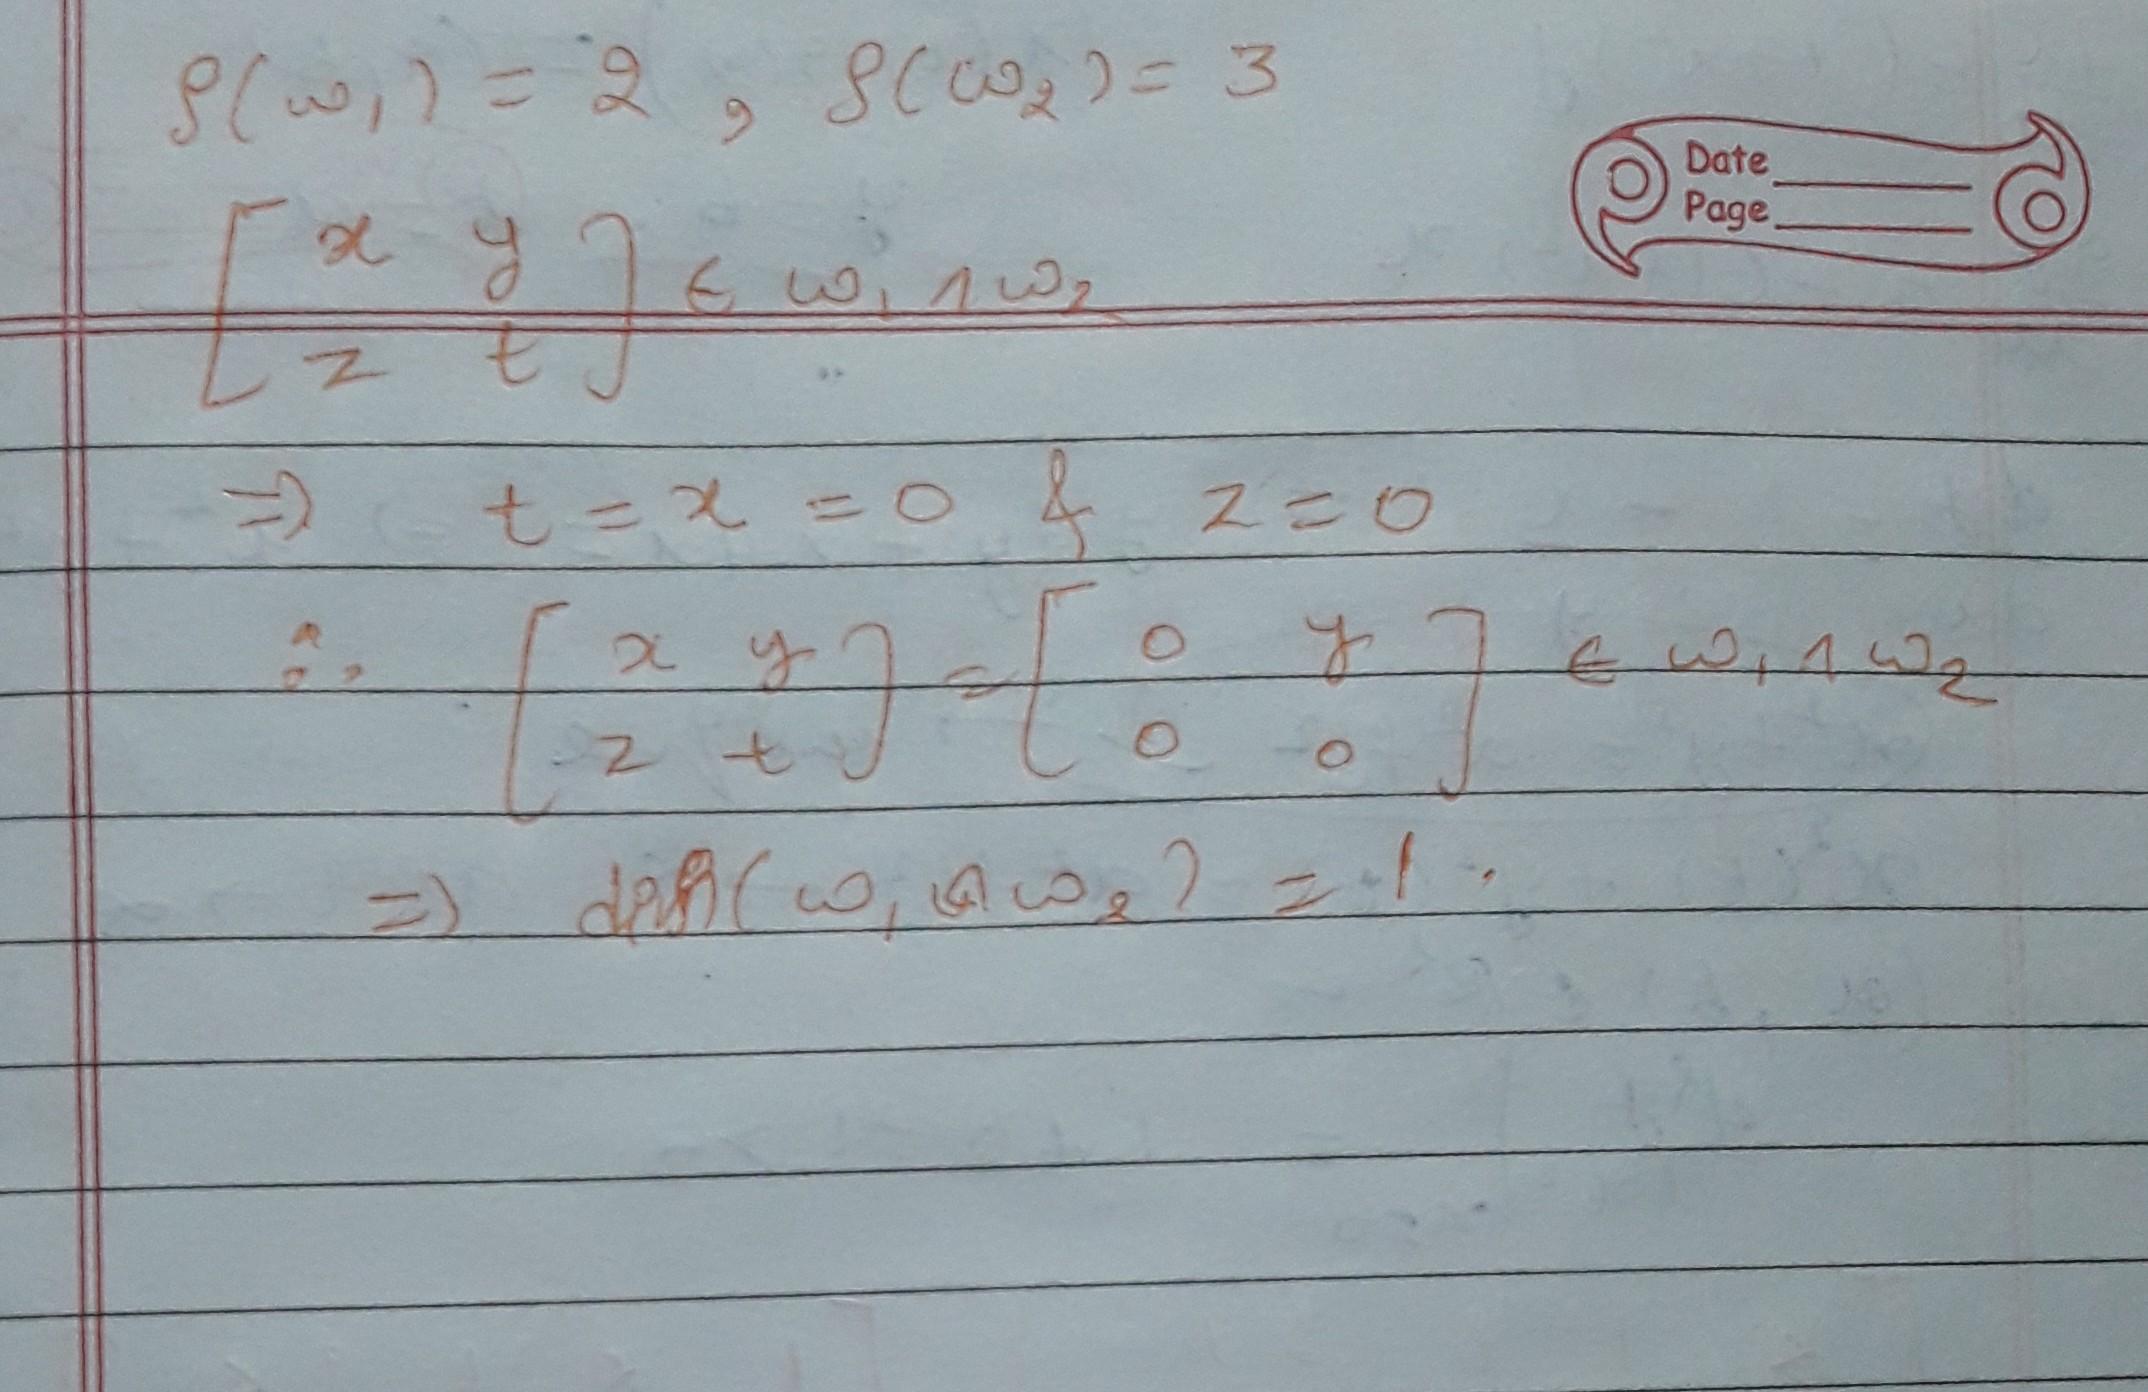 ρ(ω₁) = 2 , ρ(ω₂) = 3
Date
Page
[ x y
z t ] ∈ ω₁ ∩ ω₂
⇒ t = x = 0 & z = 0
∴ [ x y
z t ] = [ 0 y
0 0 ] ∈ ω₁ ∩ ω₂
⇒ dim(ω₁ ∩ ω₂) = 1 .